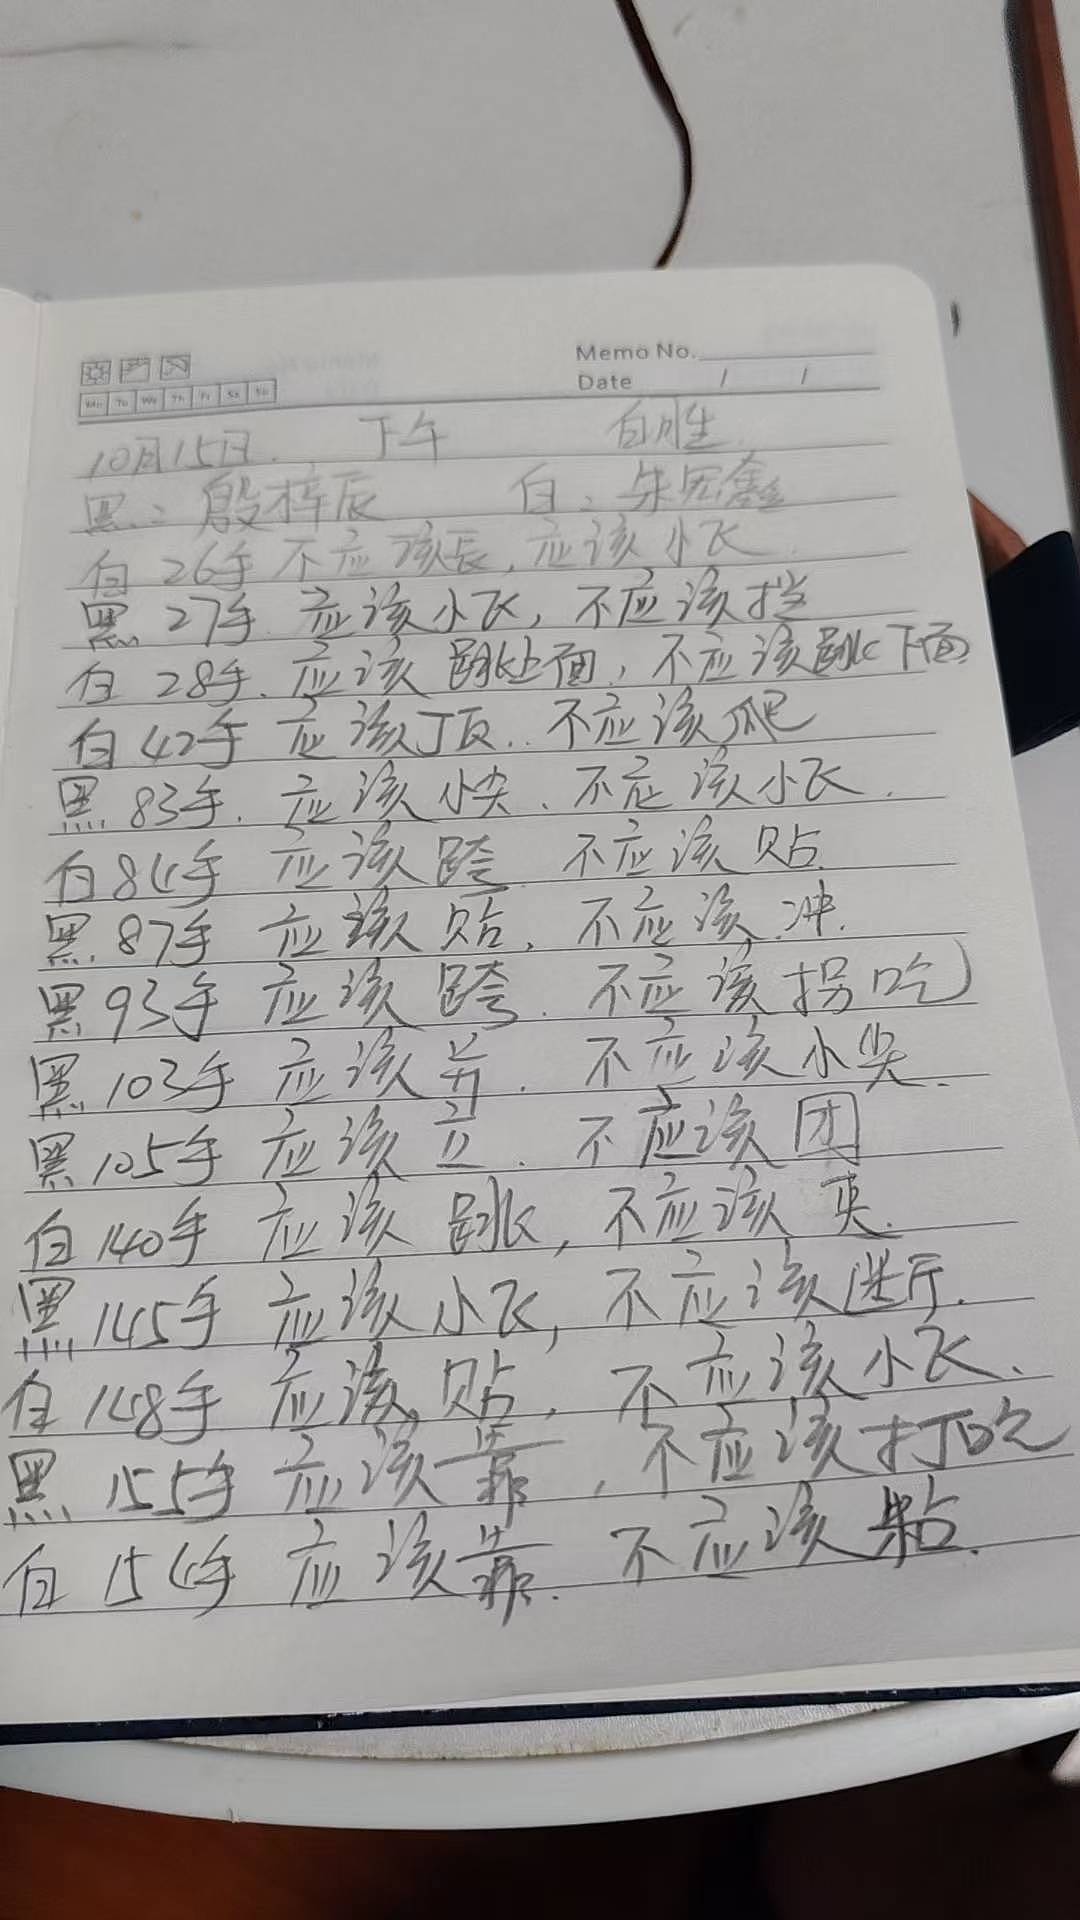 Memo No.
Date / /
Mo Tu We Th Fr Sa Su
10月15日. 下午 白胜
黑: 殷梓辰 白: 朱宏鑫
白26手不应该长,应该小飞.
黑27手.应该小飞,不应该挡
白28手.应该跳上面,不应该跳下面
白42手应该顶..不应该爬
黑83手.应该小尖.不应该小飞.
白84手应该跨.不应该贴.
黑87手应该贴,不应该冲.
黑93手应该跨.不应该拐吃
黑103手应该并.不应该小尖.
黑105手应该立.不应该团
白140手应该跳,不应该夹.
黑145手应该小飞,不应该进行.
白148手应该贴,不应该小飞.
黑155手应该靠,不应该打吃
白154手应该靠.不应该粘.